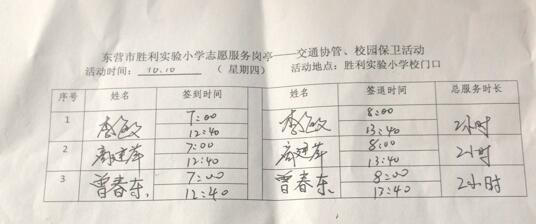 东营市胜利实验小学志愿服务岗亭——交通协管、校园保卫活动
活动时间： 10.10 （ 星期四） 活动地点：胜利实验小学校门口
序号 姓名 签到时间 姓名 签退时间 总服务时长
1 李敏 7:00 李敏 8:00 2小时
12:40 13:40
2 7:00 8:00 2小时
12:40 13:40
3 曾春东 7:00 曾春东 8:00 2小时
12:40 13:40